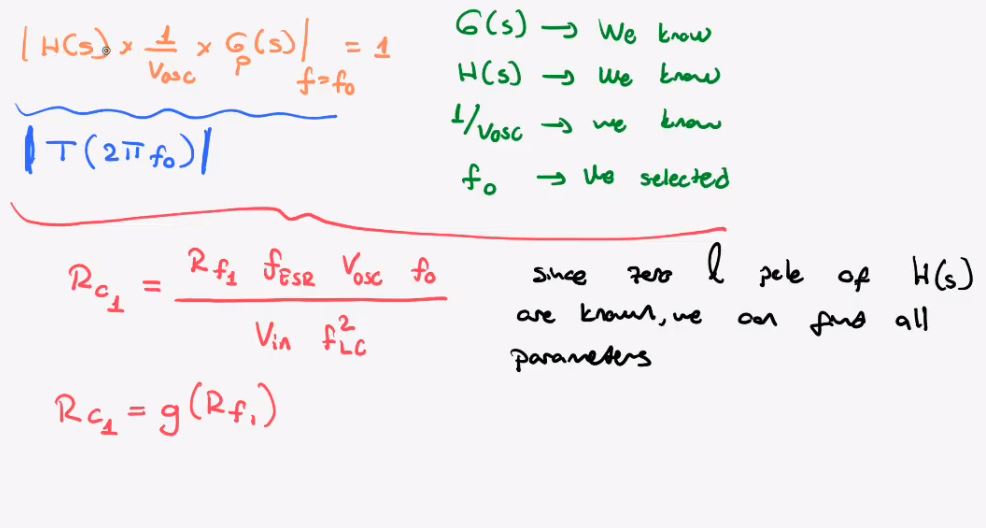 |H(s) × 1/Vosc × Gp(s)| f=f0 = 1
|T(2πf0)|
G(s) → We know
H(s) → We know
1/Vosc → we know
f0 → We selected
Rc1 = Rf1 fESR Vosc f0 / Vin fLC²
Rc1 = g(Rf1)
since zero & pole of H(s)
are known, we can find all
parameters